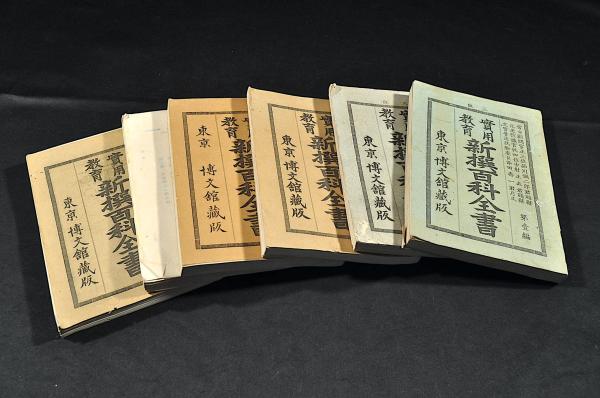 實用
教育
新撰百科全書
東京 博文館藏版
實用
教育
新撰百科全書
東京 博文館藏版
實用
教育
新撰百科全書
東京 博文館藏版
教育
新撰百
東京 博文館藏版
第壹編
實用
教育
新撰百科全書
東京 博文館藏版